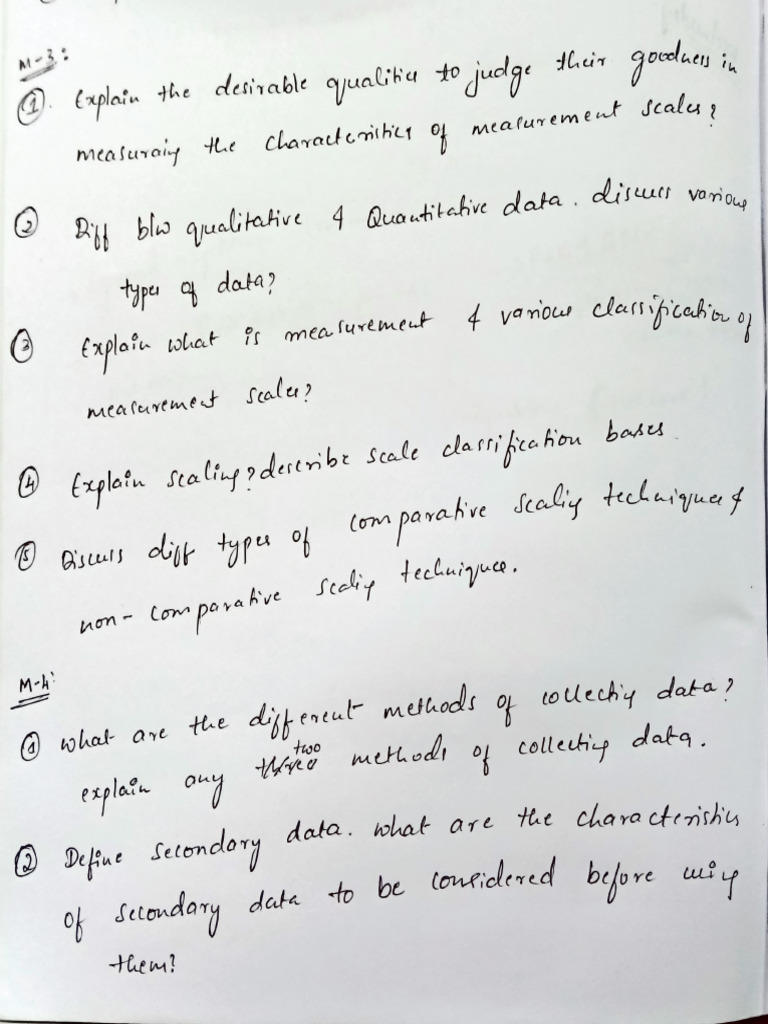 M-3:
① Explain the desirable qualities to judge their goodness in
measuraing the characteristics of measurement scales?
② Diff b/w qualitative & Quantitative data. discuss various
types of data?
③ Explain what is measurement & various classification of
measurement scales?
④ Explain scaling? describe scale classification bases
⑤ Discuss diff types of comparative scaling techniques &
non-comparative scaling techniques.
M-4:
① what are the different methods of collecting data?
explain any two methods of collecting data.
② Define secondary data. what are the characteristics
of secondary data to be considered before using
them?